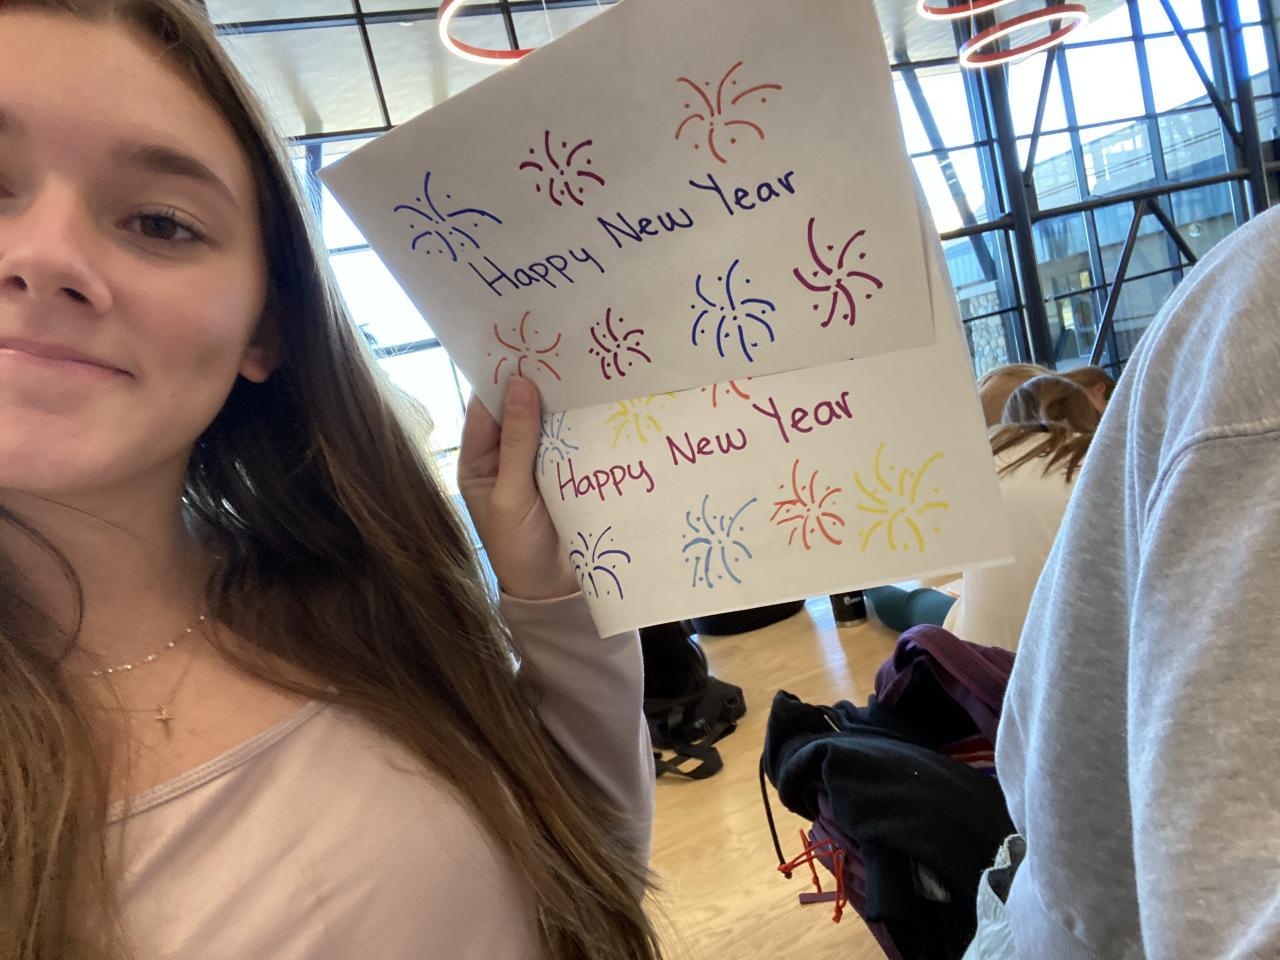 Happy New Year
Happy New Year